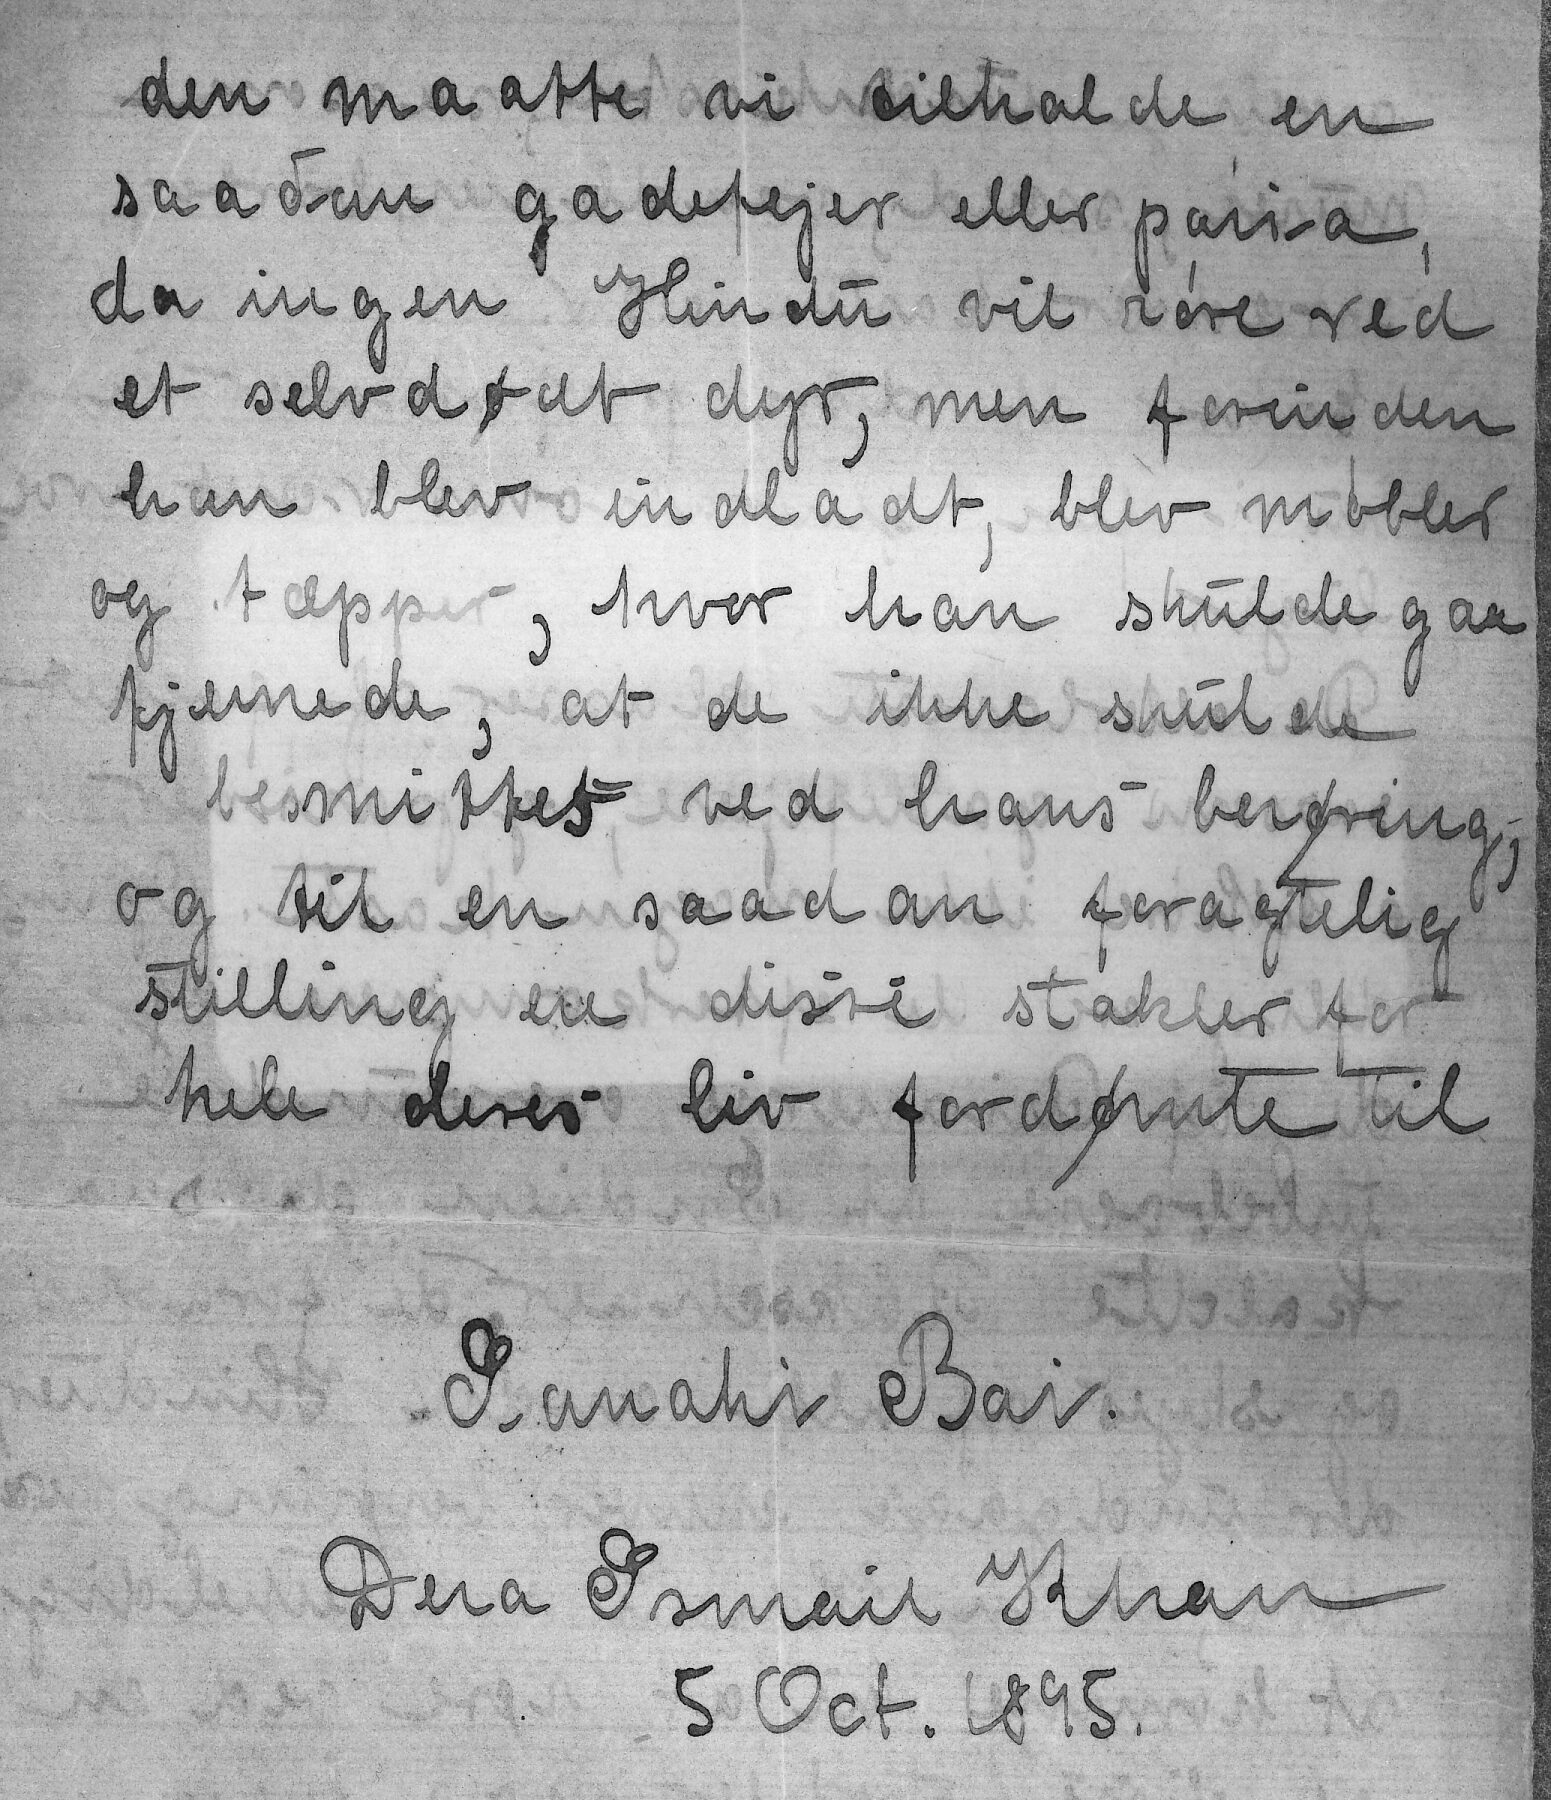 den maatte vi tilkalde en
saadan gadefejer eller paria,
da ingen Hindū vil røre ved
et selvdødt dyr, men forinden
han blev indladt, blev møbler
og tæpper, hvor han skulde gaa
fjernede, at de ikke skulde
besmittes ved hans berøring;
og til en saadan foragtelig
stilling ere disse stakler for
hele deres liv fordømte til
Sanahi Bai.
Dera Ismail Khan
5 Oct. 1895.